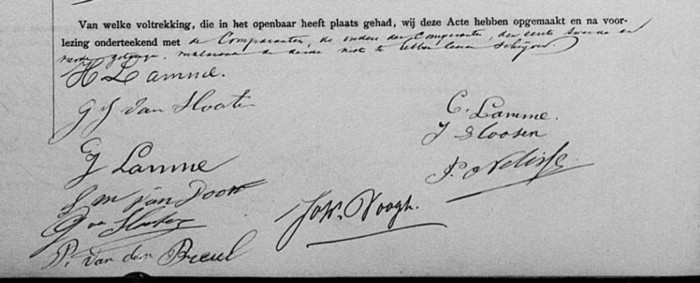 Van welke voltrekking, die in het openbaar heeft plaats gehad, wij deze Acte hebben opgemaakt en na voor-
lezing onderteekend met de Comparanten, de ouders der Comparanten, den eerste tweede en
vierde getuige, malsende de derde niet te hebben leeren schrijven.
H Lamme.
G J Van Sloote
C. Lamme.
J Sloosen
G J Lamme
S M Van Doorn
Joh. Voogh.
P. van den Breul